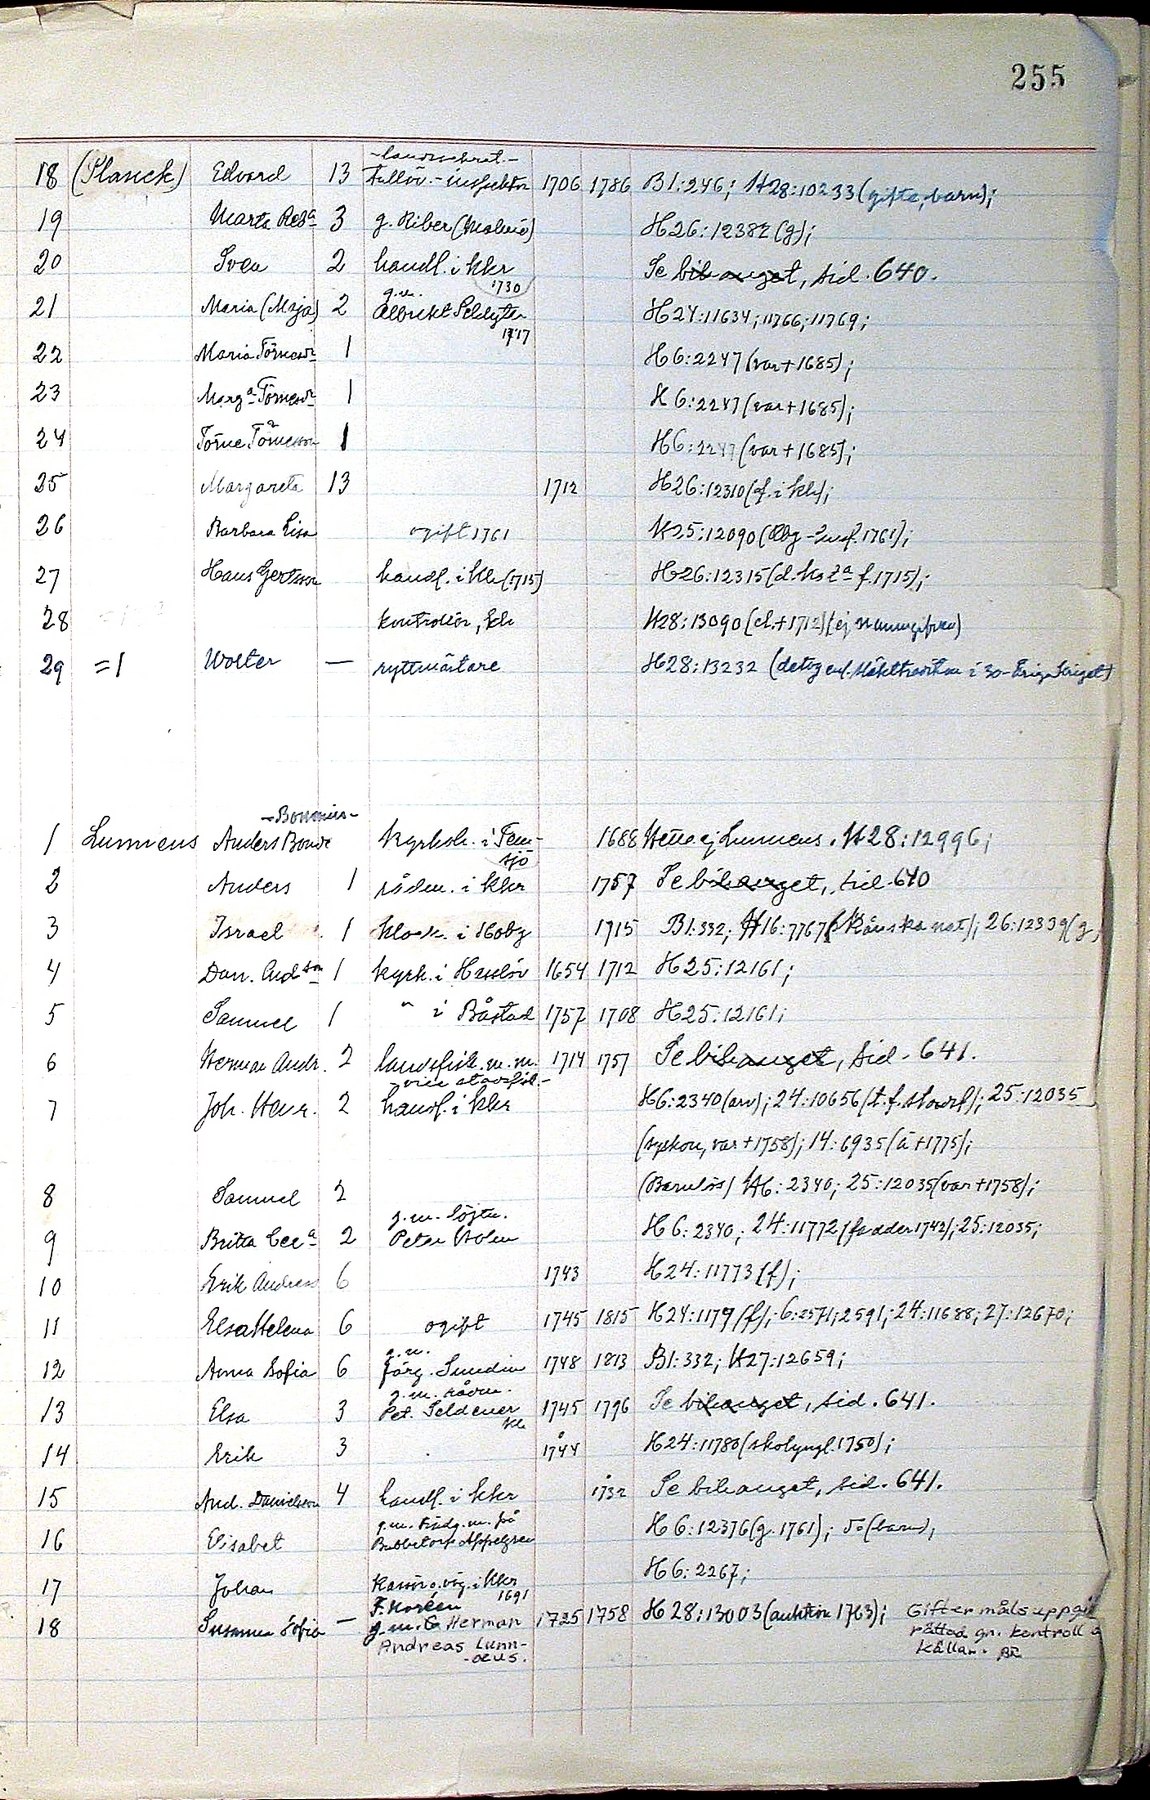 255
-landssekret.-
18 (Planck) Edvard 13 Tullöv.-inspektor 1706 1786 Bl:246; H28:10233 (gifte, barn);
19 Marta Reba 3 g. Riber (Malmö) H26:12382 (g);
20 Sven 2 handl. i khr 1730 Se bihanget, sid. 640.
21 Maria (Maja) 2 g.m. Albrekt 1717 H24:11634; 11766; 11769;
22 Maria Törnesdr 1 H6:2247 (var + 1685);
23 Marga Törnesdr 1 H6:2247 (var + 1685);
24 Törne Törnesson 1 H6:2247 (var + 1685);
25 Margareta 13 1712 H26:12310 (f. i khr);
26 Barbara Lisa ogift 1761 H25:12090 1761);
27 Hans Gertsson handl. i khr (1715) H26:12315 f. 1715);
28 kontrollör, khr H28:13090 + 1712) (ej namngifven)
29 =1 Wolter — ryttmästare H28:13232 (deltog enl. släkttradition i 30-åriga kriget)
-Bonnius-
1 Lunnens Anders Bonde kyrkoh. i Fem-
sjö 1688 Hette ej Lunnens. H28:12996;
2 Anders 1 rådm. i khr 1757 Se bihanget, sid. 640
3 Israel 1 klock. i Hoby 1715 Bl:332; H16:7767 (Skånska nat); 26:12339 (g,
4 Dan. Andson 1 kyrk. i Hasslöv 1654 1712 H25:12161;
5 Samuel 1 " i Båstad 1757 1708 H25:12161;
6 Herman Andr. 2 landsfisk. m.m. 1714 1757 Se bihanget, sid. 641.
vice stadsfisk.-
7 Joh. Henr. 2 handl. i khr H6:2340 (arv); 24:10656 25:12035
(syskon, var + 1758); 14:6935 (ä + 1775);
8 Samuel 2 (Barnlös) H6:2340; 25:12035 (var + 1758);
g.m. löjtn.
9 Britta Cec a 2 Peter Holm H6:2340; 24:11772 (fadder 1742); 25:12035;
10 Erik Andreas 6 1743 H24:11773 (f);
11 Elsa Helena 6 ogift 1745 1815 H24:1179 (f); 6:2571; 2591; 24:11688; 27:12670;
g.m.
12 Anna Sofia 6 Jörg. Sundin 1748 1813 Bl:332; H27:12659;
g.m. rådm.
13 Elsa 3 Pet. Seldener khr 1745 1796 Se bihanget, sid. 641.
14 Erik 3 1744 H24:11780 (skolyngl. 1750);
15 And. Danielsson 4 handl. i khr 1732 Se bihanget, sid. 641.
16 Elisabet g.m. trädg.m. på
Appelgren H6:12376 (g. 1761); (barn);
17 Johan i khr 1691 H6:2267;
F. Noréen
18 Susanna Sofia — g.m. G Herman 1725 1758 H28:13003 (auktion 1763); Giftermålsuppgif
Andreas Lunn-
oeus.
rättad gn. kontroll a
källan.